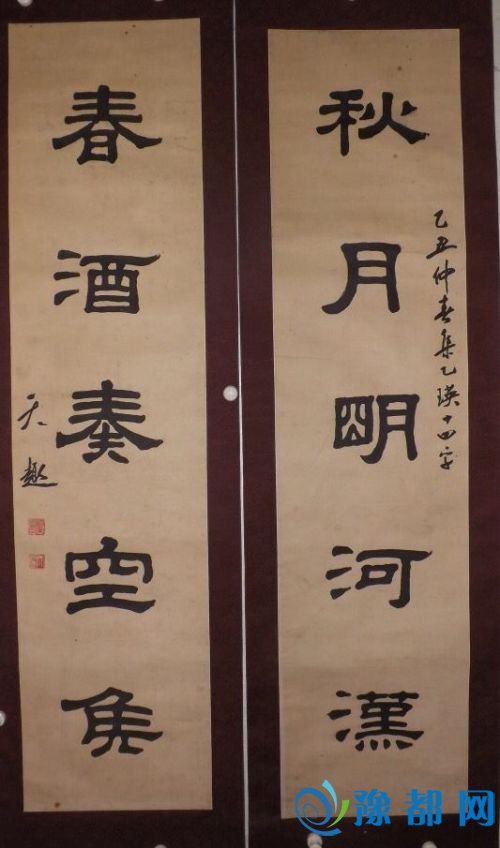 秋月明河漢
乙丑仲春集乙瑛十四字
春酒奏空侯
天趣
豫都网